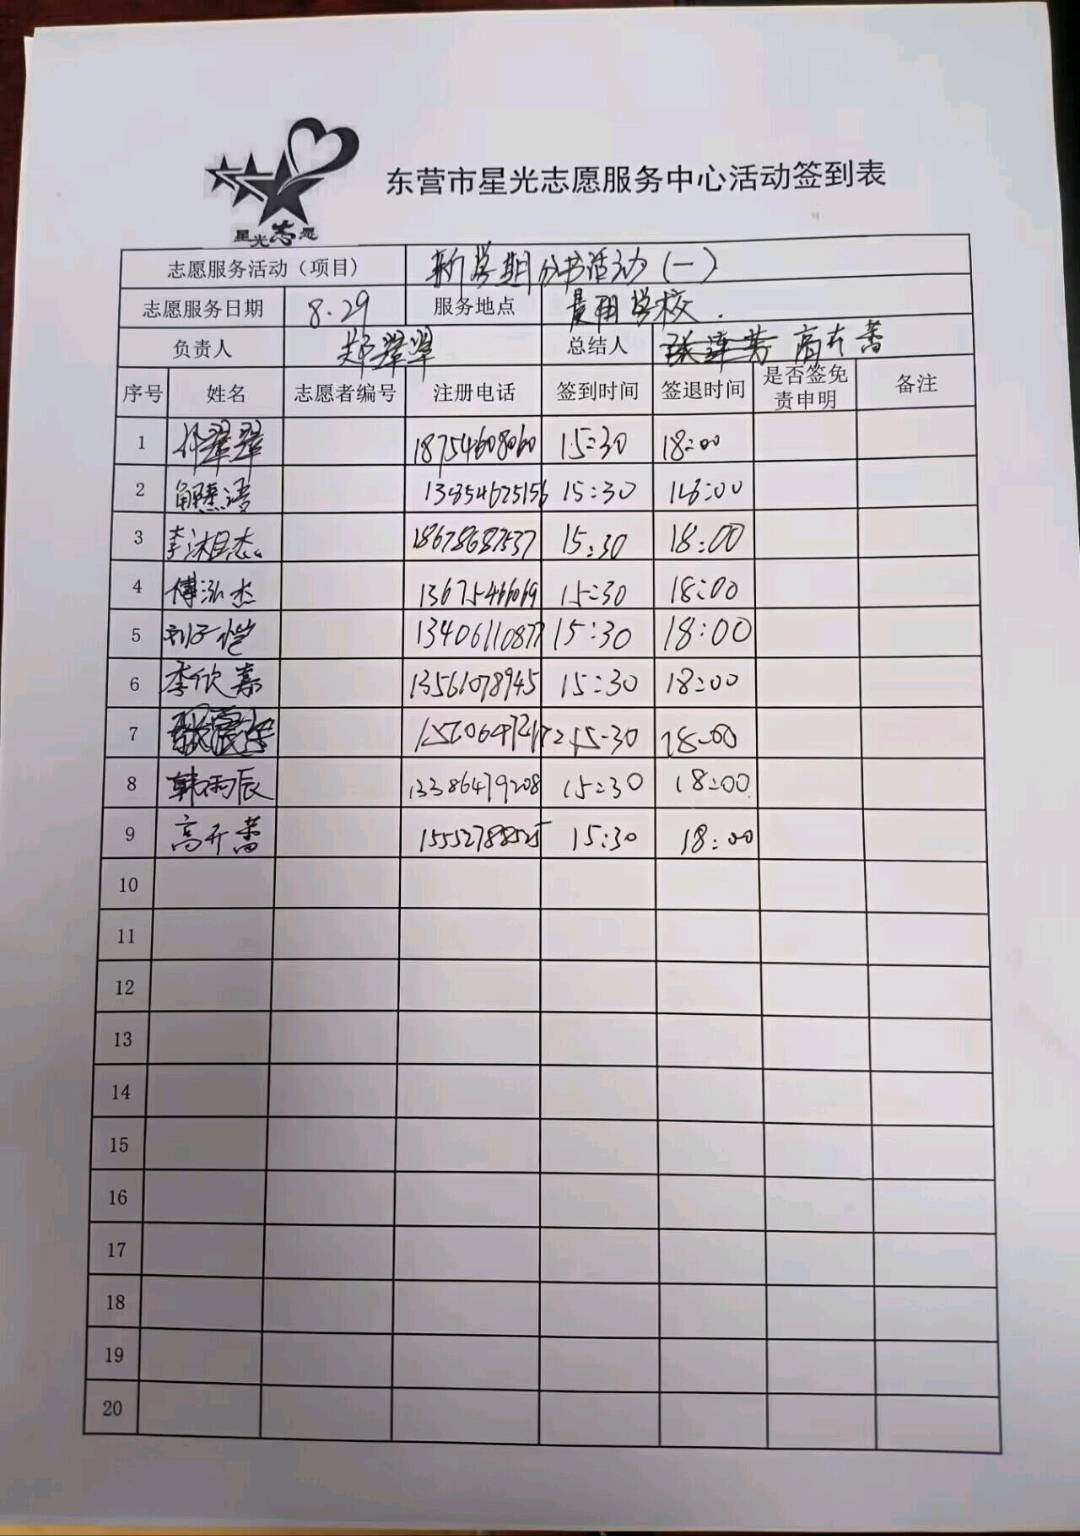 星光志愿
东营市星光志愿服务中心活动签到表
志愿服务活动（项目） 新学期分书活动（一）
志愿服务日期 8.29 服务地点 晨阳学校.
负责人 郑翠翠 总结人 高
序号 姓名 志愿者编号 注册电话 签到时间 签退时间 是否签免责申明 备注
1 翠翠 18754608060 15:30 18:00
2 解 15:30 18:00
3 李 15:30 18:00
4 傅泓杰 15:30 18:00
5 刘子恺 15:30 18:00
6 李欣嘉 13561078945 15:30 18:00
7 15:30 18:00
8 韩雨辰 13386479208 15:30 18:00
9 高开 15552788525 15:30 18:00
10
11
12
13
14
15
16
17
18
19
20